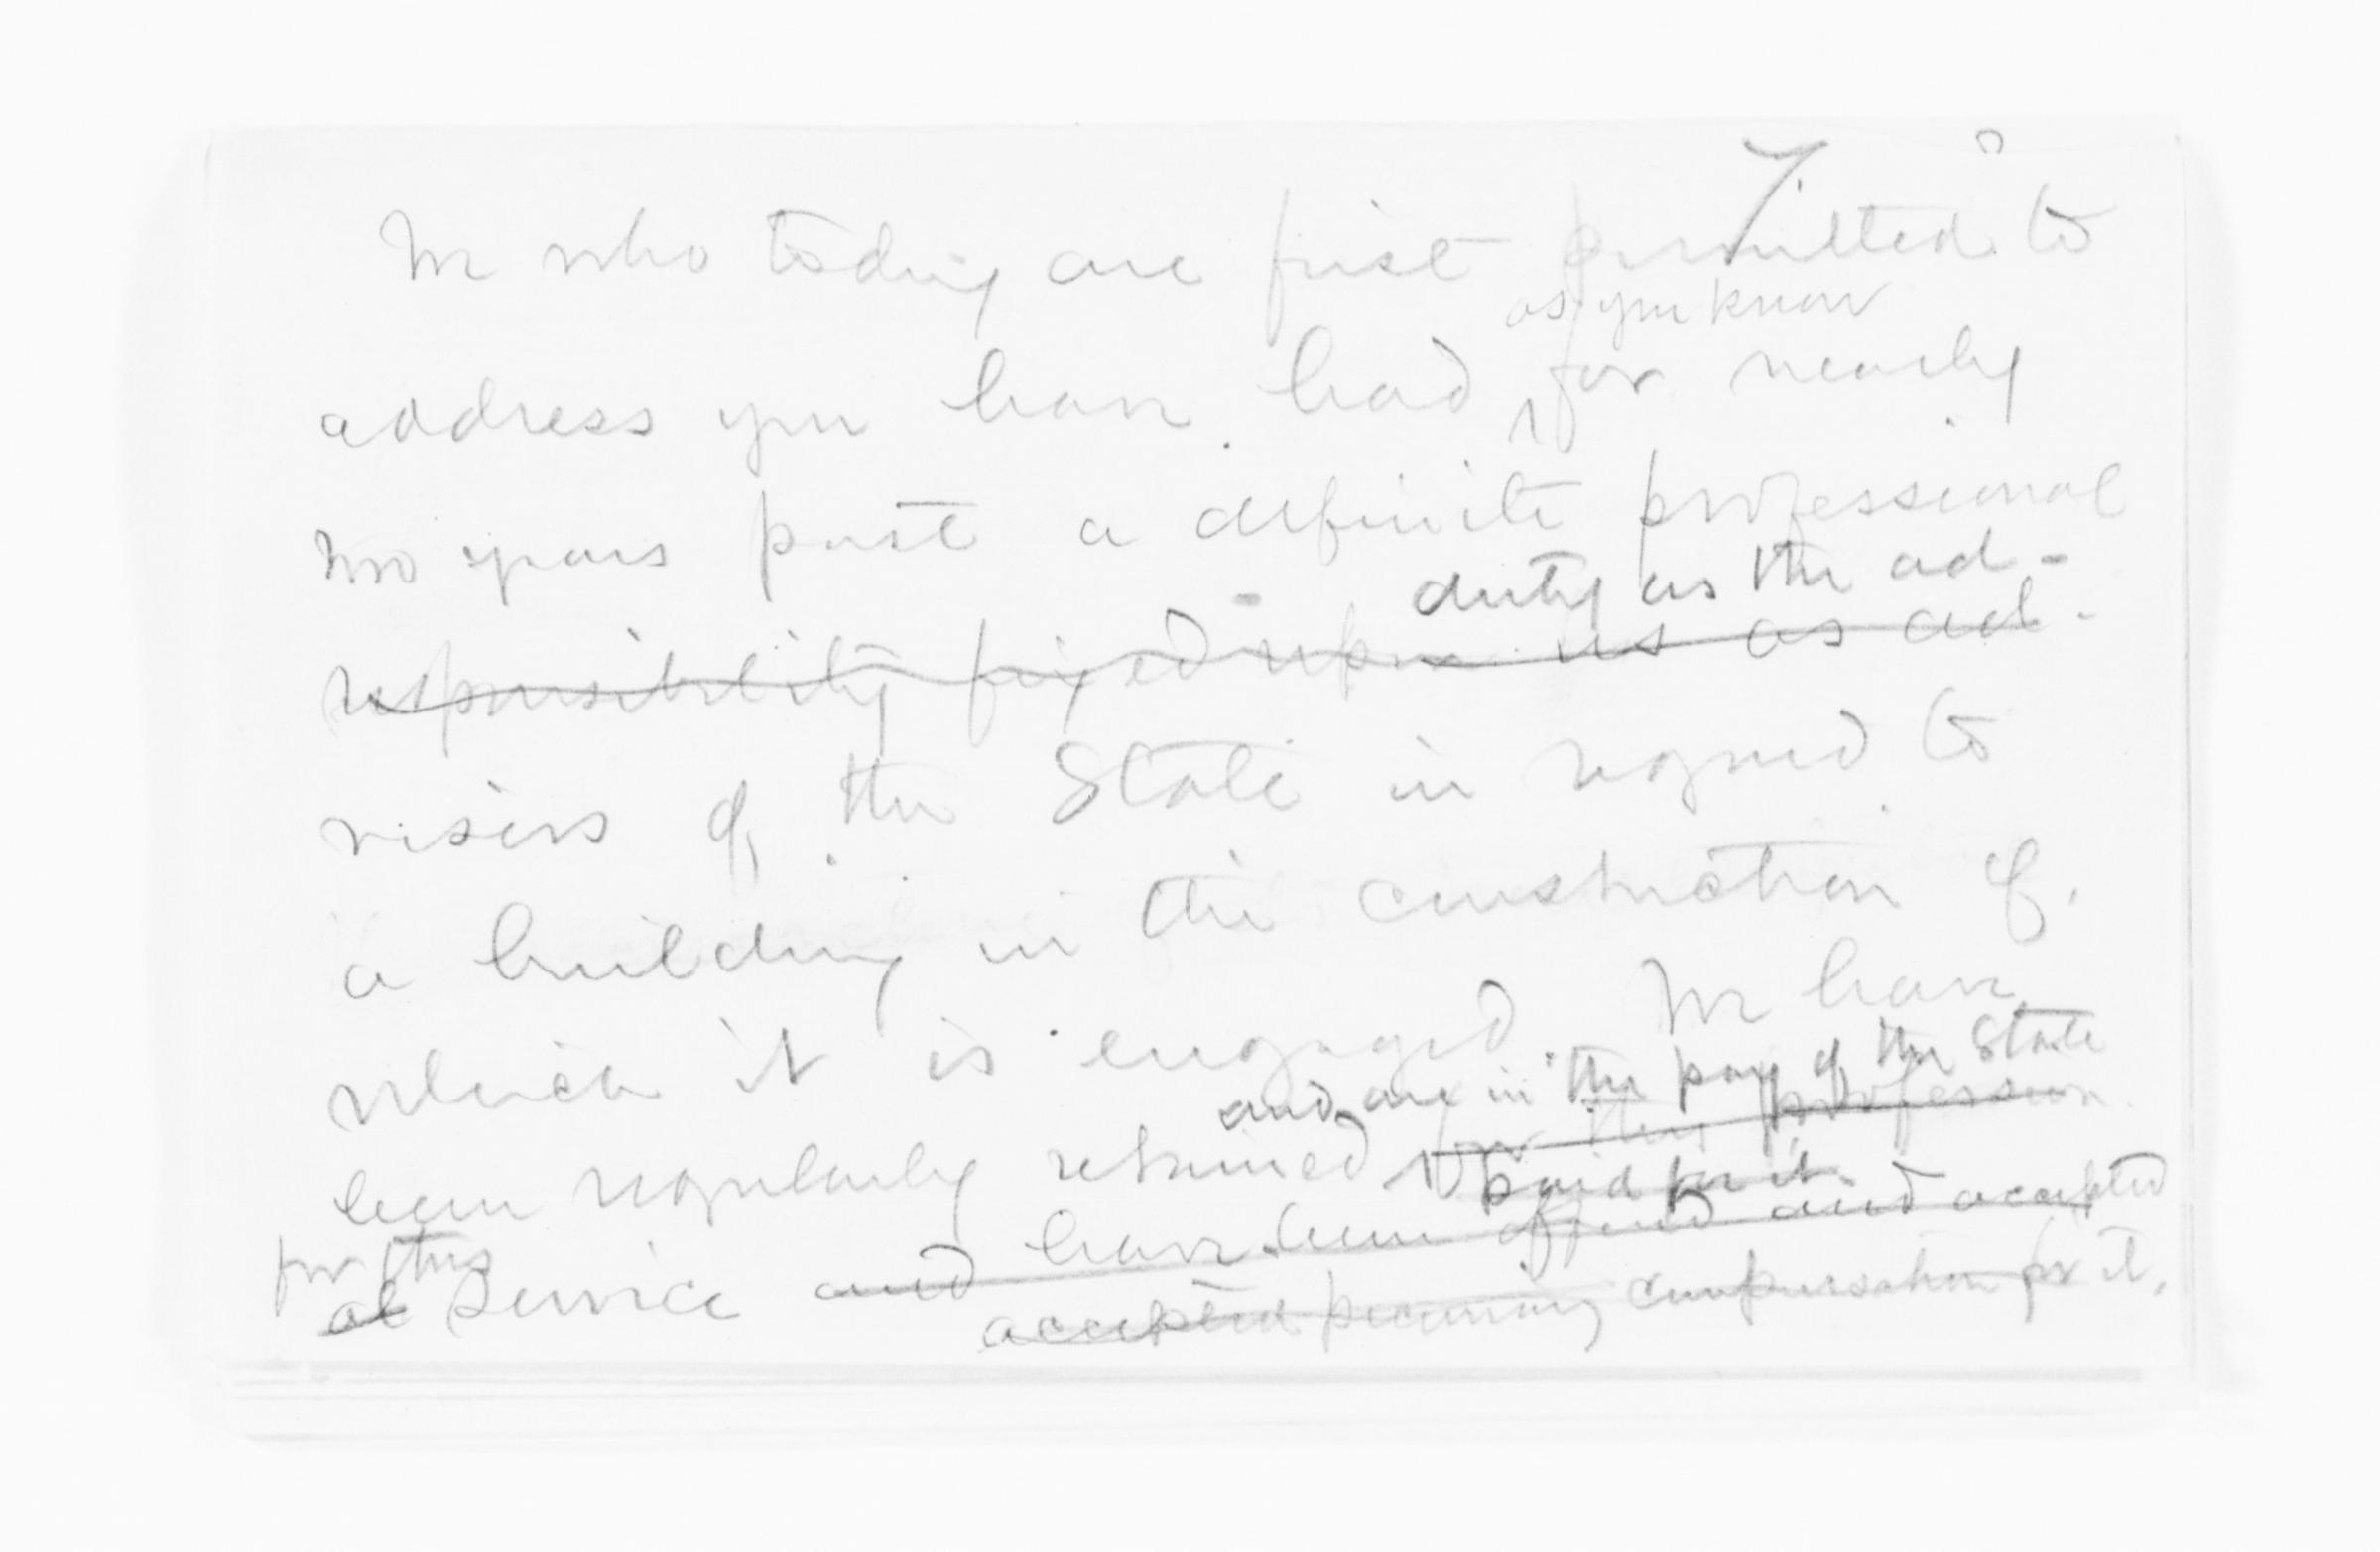 7
We who today are first permitted to
as you know
address you have had for nearly
two years past a definite professional
duty as the ad-
responsibility fixed upon us as ad-
visers of the State in regard to
a building in the construction of
which it is engaged. We have
and are in the pay of the State
been regularly retained for this profession
paid for it
for this
al service and have been offered and accepted
accepted pecuniary compensation for it.